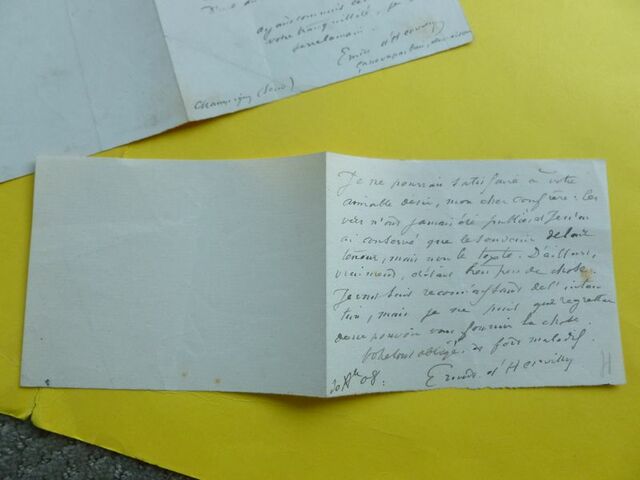 ayant commis
votre tranquillité, je
Emile d'Hervilly
Champigny (Seine)
Je ne pourrais satisfaire à votre
aimable désir, mon cher confrère : les
vers n'ont jamais été publiés et je n'en
ai conservé que le souvenir de leur
teneur, mais non le texte. D'ailleurs,
vraiment, c'était bien peu de chose.
Je vous suis reconnaissant de l'inten
tion, mais je ne puis que regretter
de ne pouvoir vous fournir la chose.
Votre tout obligé, et fort maladif
Ernest d'Hervilly
08.
H